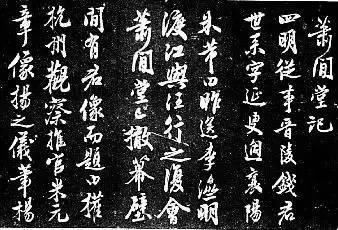 蕭閒堂記
四明從事晉陵錢君
世京字延叟過襄陽
米芾曰昨送李瀛明
渡江與汪行之復會
蕭閒堂上撤幕壁
間有君像而題曰權
杭州觀察推官米元
章像揚之儀筆楊